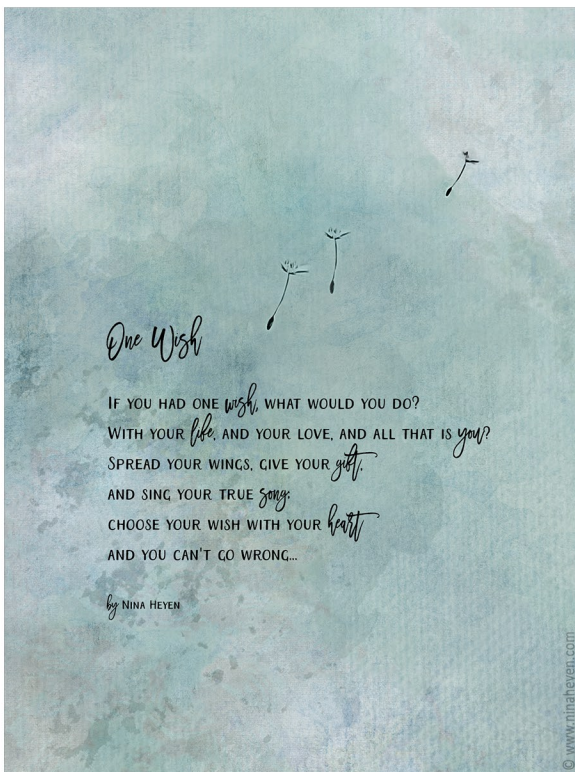 One Wish
If you had one wish, what would you do?
With your life, and your love, and all that is you?
Spread your wings, give your gift,
and sing your true song:
choose your wish with your heart
and you can't go wrong...
by Nina Heyen
© www.ninaheyen.com